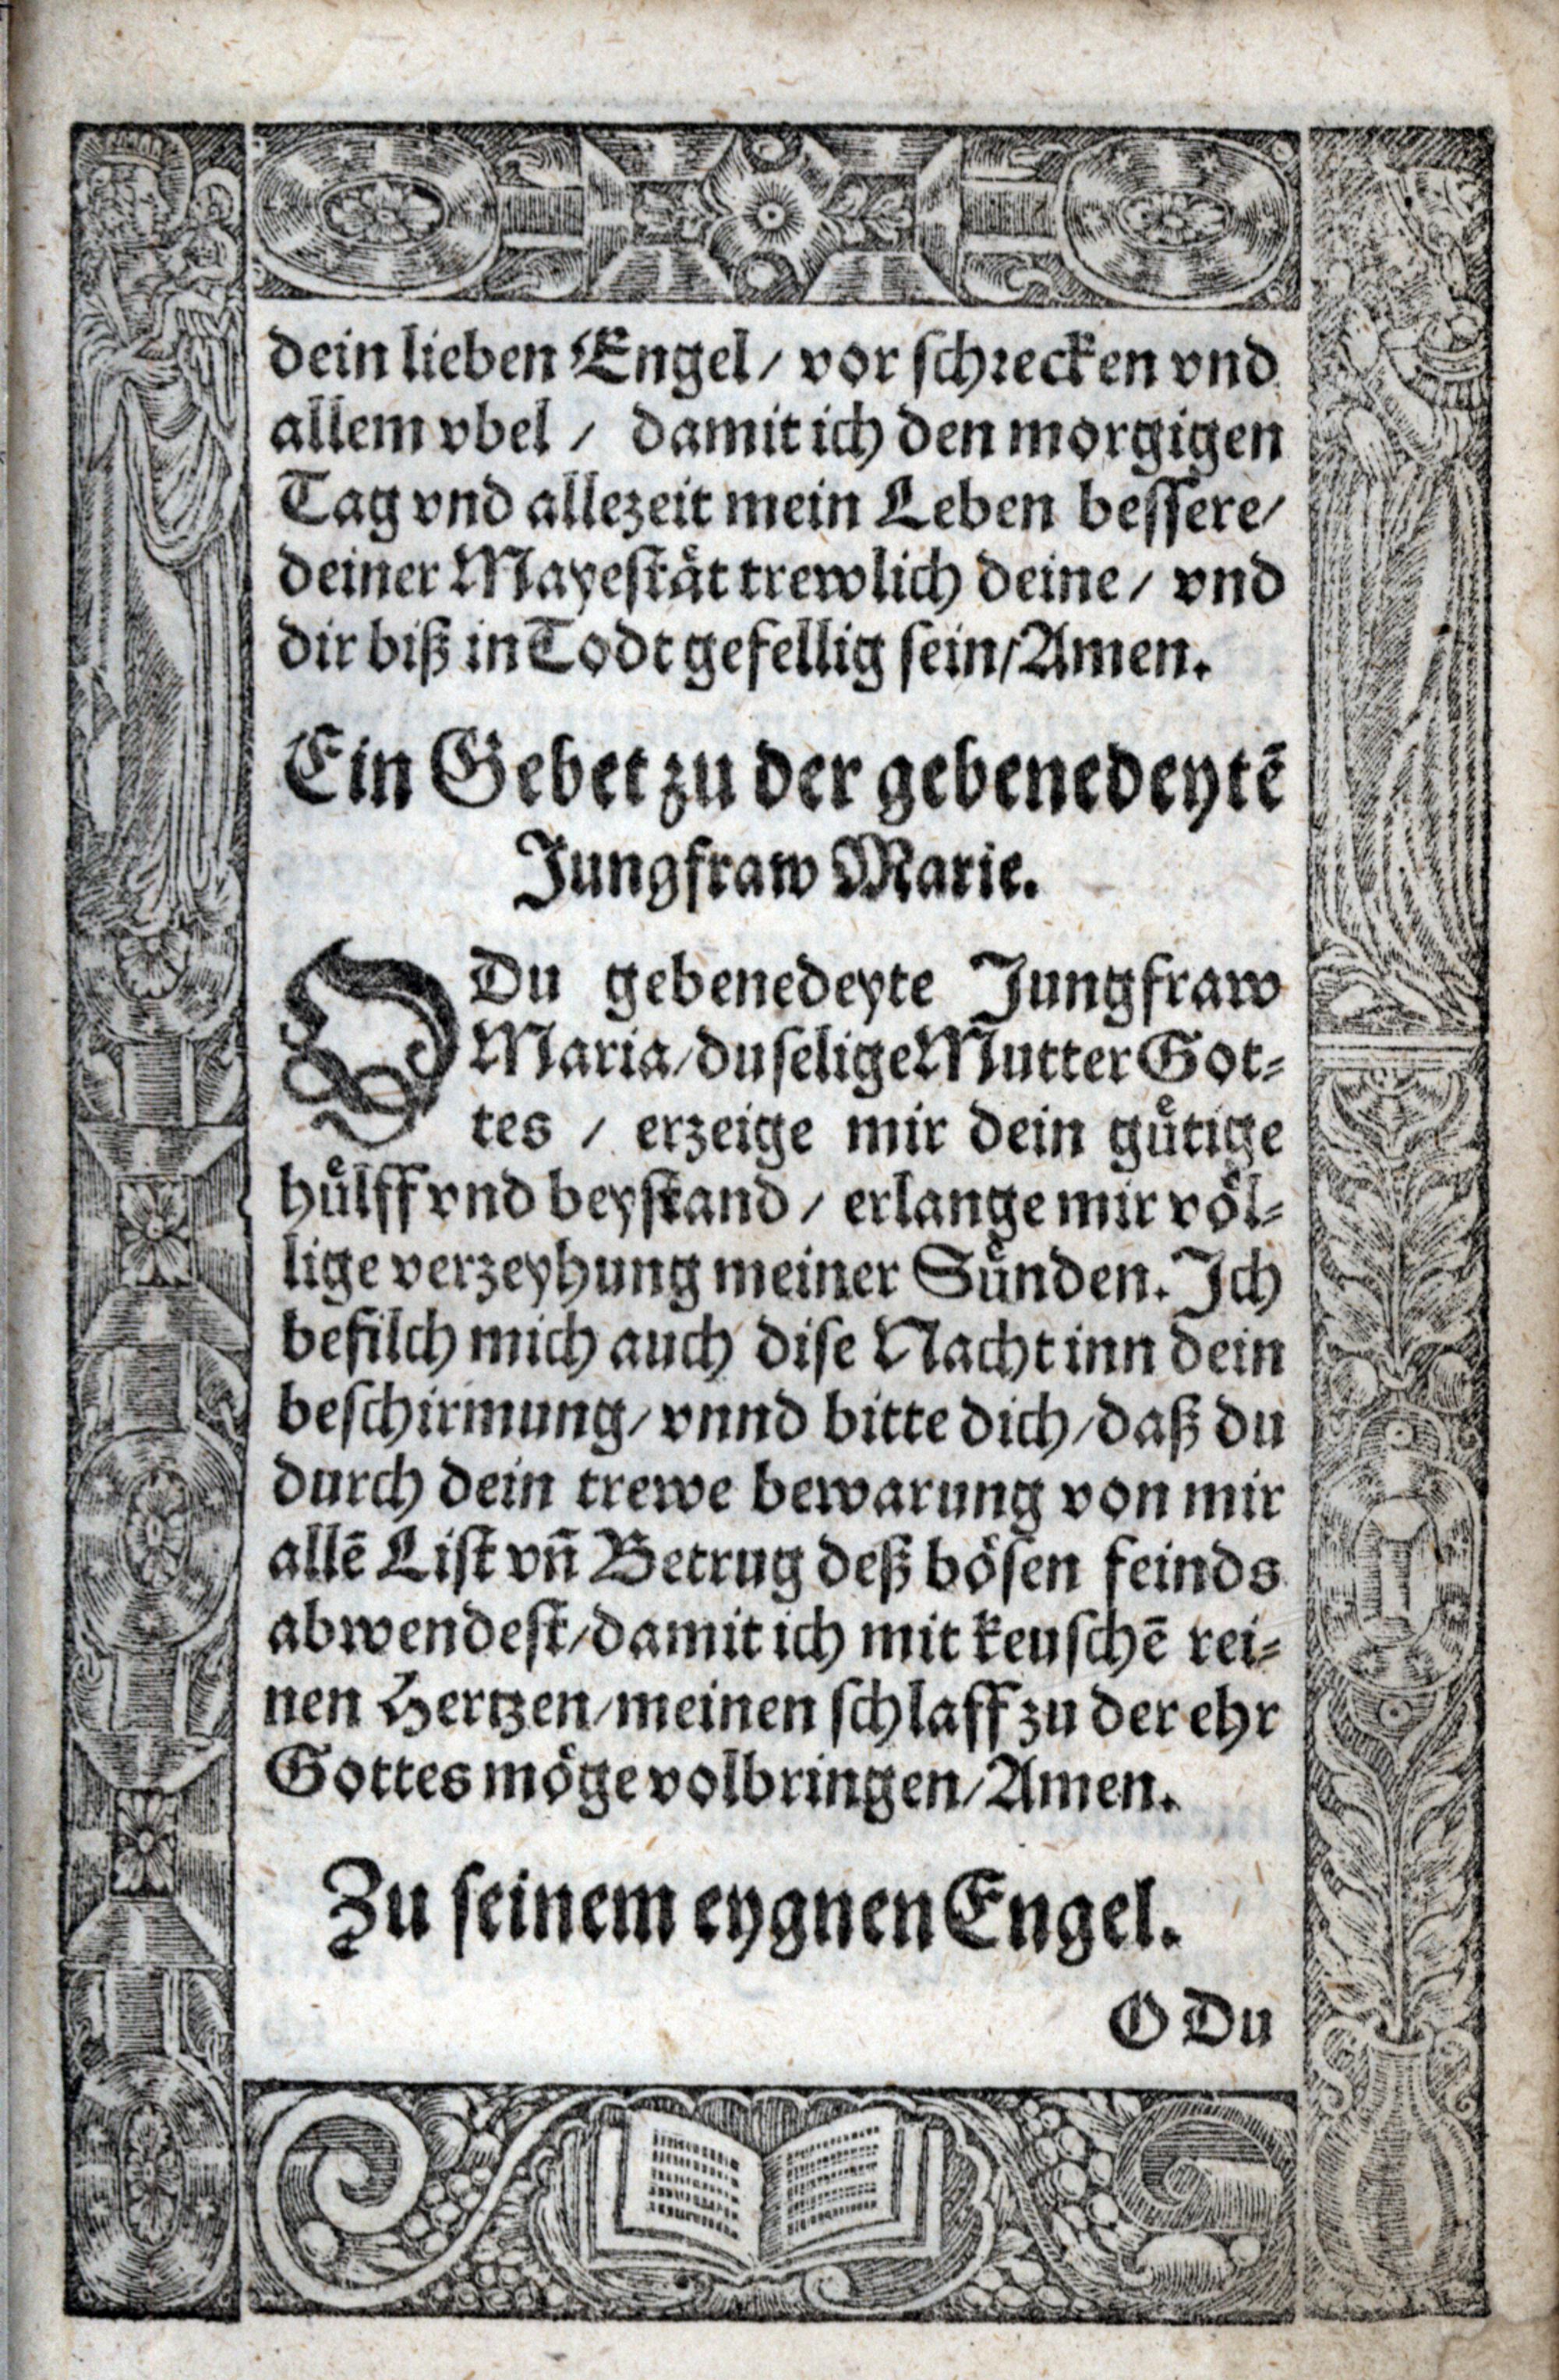 dein lieben Engel / vor schrecken vnd
allem vbel / damit ich den morgigen
Tag vnd allezeit mein Leben bessere /
deiner Mayeståt trewlich deine / vnd
dir biß in Todt gefellig sein / Amen.
Ein Gebet zu der gebenedeytē
Jungfraw Marie.
O Du gebenedeyte Jungfraw
Maria / du selige Mutter Got⸗
tes / erzeige mir dein guͤtige
huͤlff vnd beystand / erlange mir voͤl⸗
lige verzeyhung meiner Suͤnden. Ich
befilch mich auch dise Nacht inn dein
beschirmung / vnnd bitte dich / daß du
durch dein trewe bewarung von mir
allē List vn̄ Betrug deß boͤsen feinds
abwendest / damit ich mit keuschē rei⸗
nen Hertzen / meinen schlaff zu der ehr
Gottes moͤge volbringen / Amen.
Zu seinem eygnen Engel.
O Du